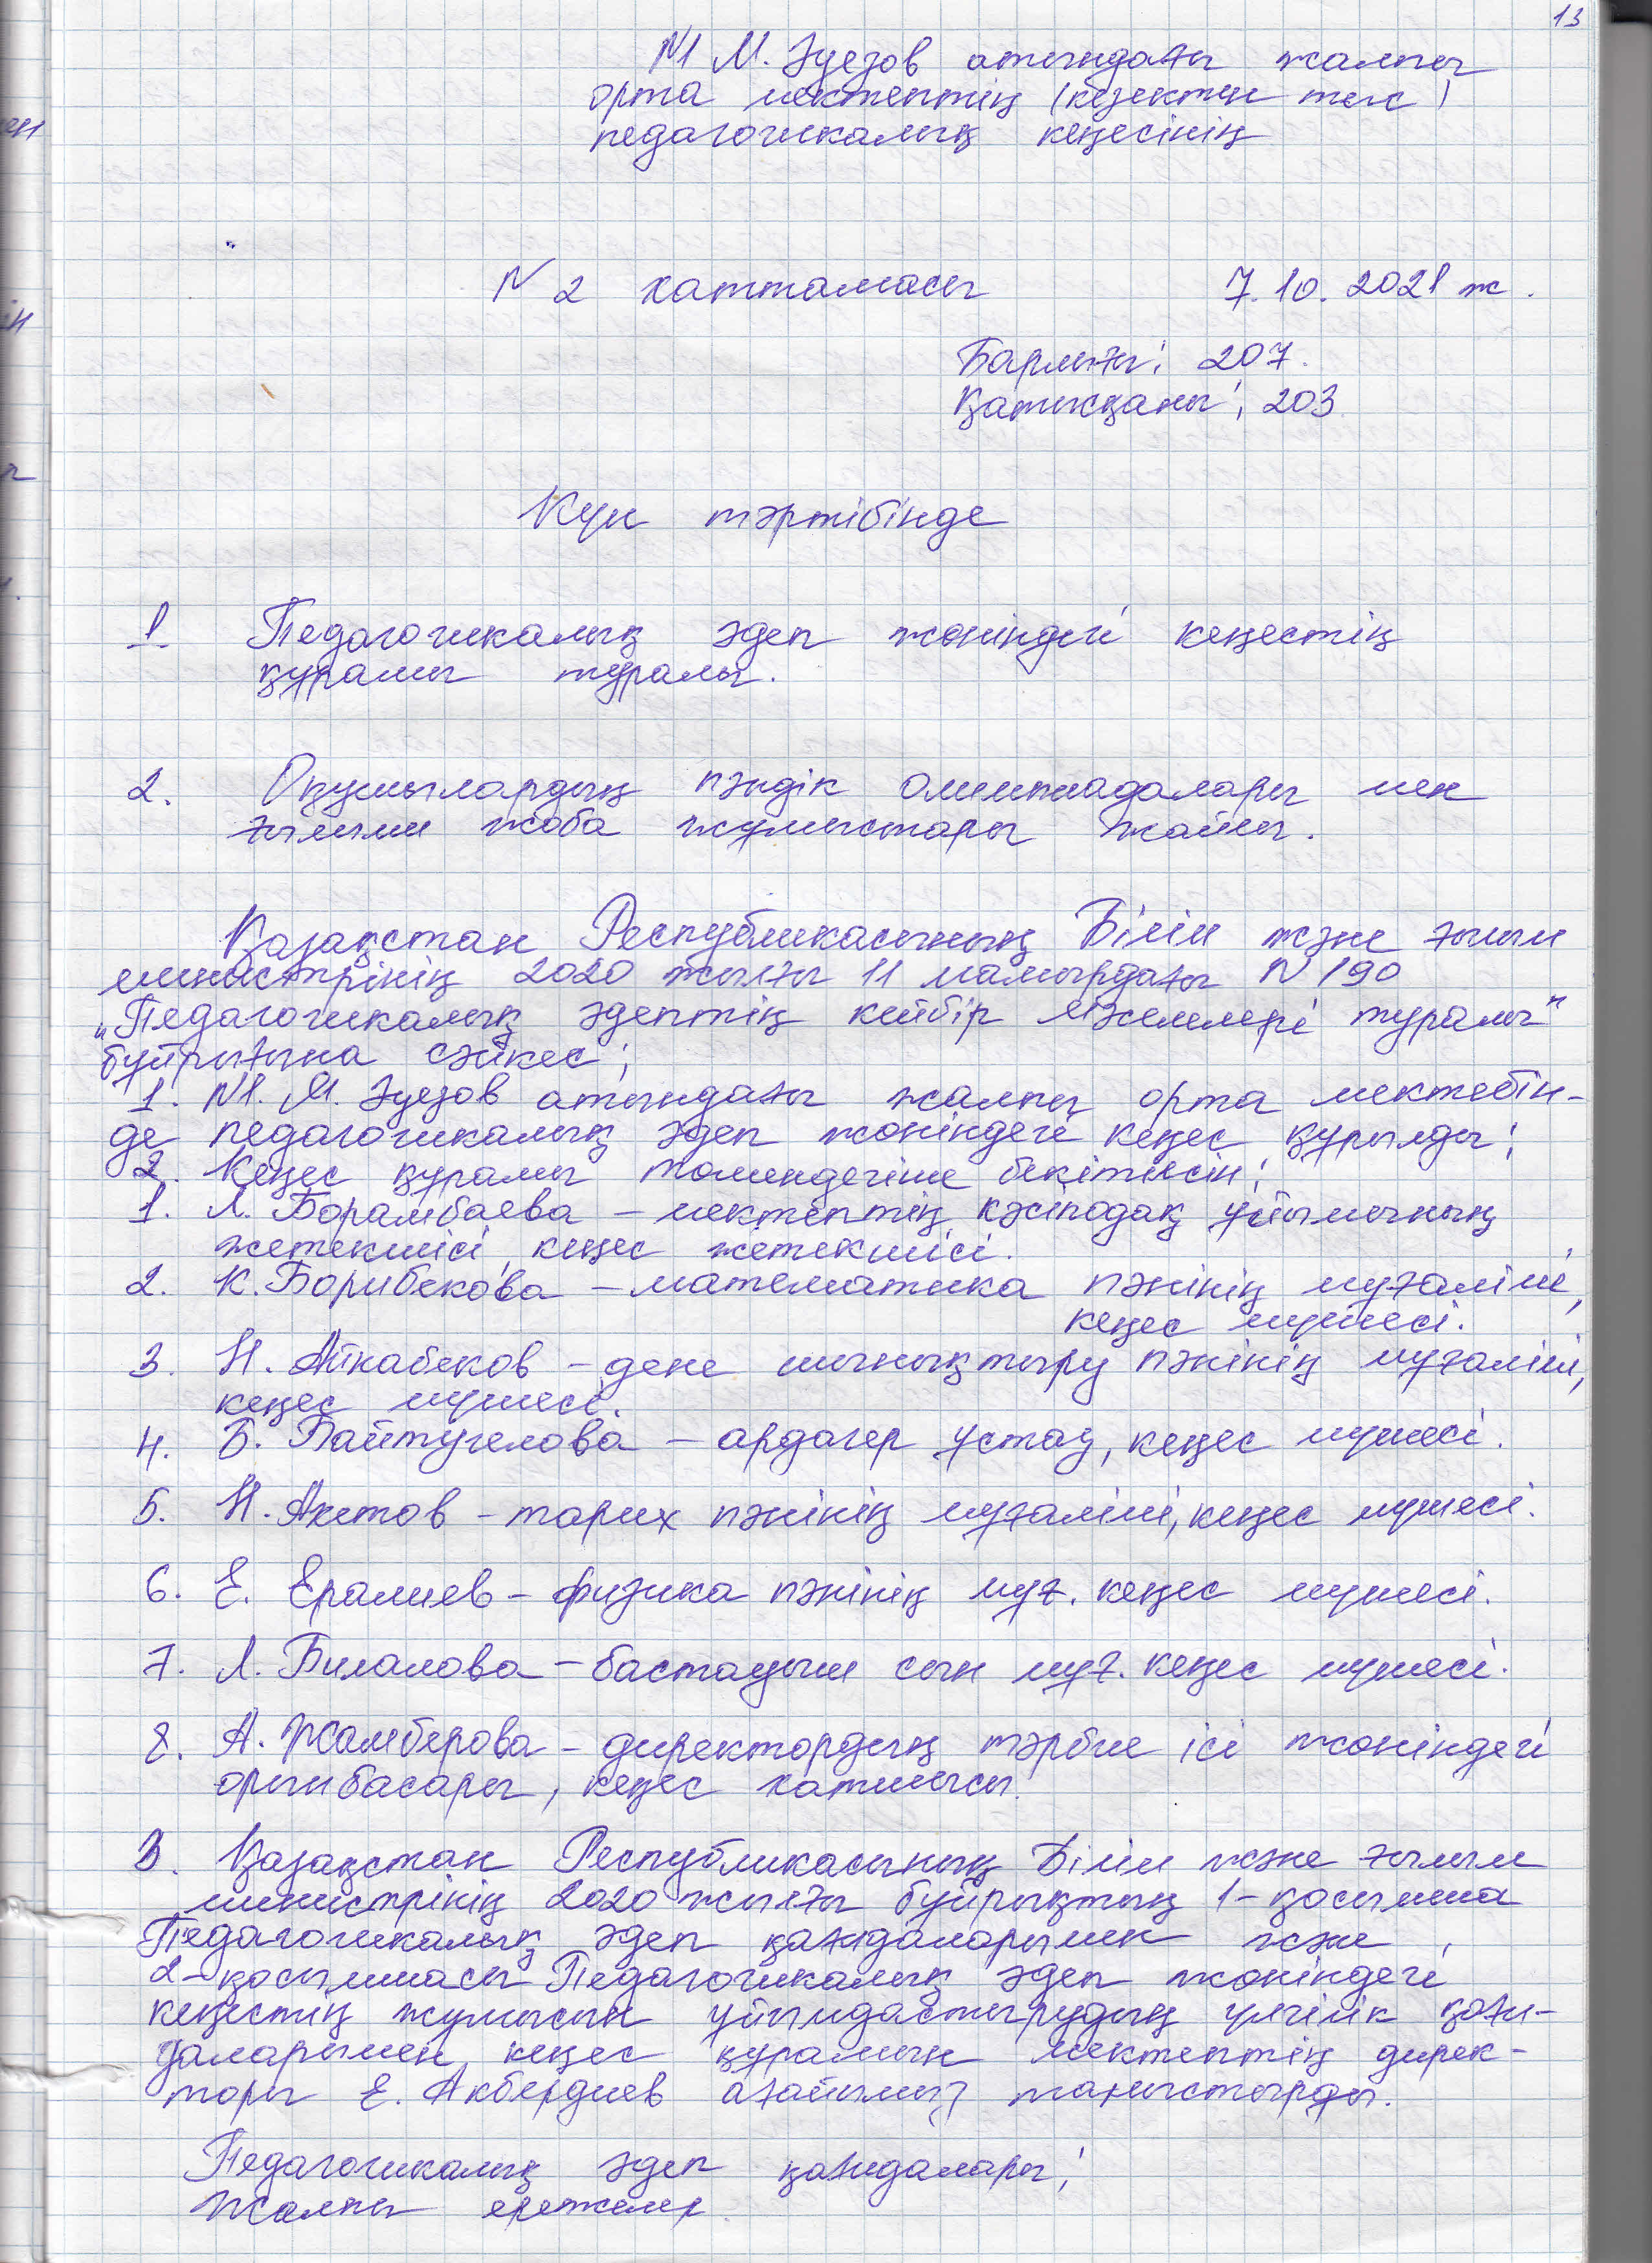 13
№1 М. Әуезов атындағы жалпы
орта мектептің (кезектен тыс)
педагогикалық кеңесінің
№ 2 хаттамасы 7.10.2021 ж.
Барлығы: 207.
Қатысқаны: 203
Күн тәртібінде
1 Педагогикалық әдеп жөніндегі кеңестің
құрамы туралы.
2. Оқушылардың пәндік олимпиадалары мен
ғылыми жоба жұмыстары жайлы.
Қазақстан Республикасының Білім және ғылым
министрінің 2020 жылғы 11 мамырдағы N 190
"Педагогикалық әдептің кейбір мәселелері туралы"
бұйрығына сәйкес;
1. №1. М. Әуезов атындағы жалпы орта мектебін-
де педагогикалық әдеп жөніндегі кеңес құрылды;
2. Кеңес құрамы төмендегіше бекітілсін;
1. Л. Борамбаева – мектептің кәсіподақ ұйымының
жетекшісі, кеңес жетекшісі.
2. К. Борибекова – математика пәнінің мұғалімі,
кеңес мүшесі.
3. Н. Айнабеков – дене шынықтыру пәнінің мұғалімі,
кеңес мүшесі.
4. Б. Байтугелова – ардагер ұстаз, кеңес мүшесі.
5. Н. Ахетов – тарих пәнінің мұғалімі, кеңес мүшесі.
6. Е. Ералиев – физика пәнінің мұғ. кеңес мүшесі.
7. Л. Билалова – бастауыш сын мұғ. кеңес мүшесі.
8. А. Жамберова – директордың тәрбие ісі жөніндегі
орынбасары, кеңес хатшысы.
3. Қазақстан Республикасының Білім және ғылым
министрінің 2020 жылғы бұйрықтың 1-қосымша
Педагогикалық әдеп қағидаларымен және
2-қосымшасы Педагогикалық әдеп жөніндегі
кеңестің жұмысын ұйымдастырудың үлгілік қағи-
даларымен, кеңес құрамын мектептің дирек-
торы Е. Акбердиев ағайымыз таныстырды.
Педагогикалық әдеп қағидалары;
Жалпы ережелер